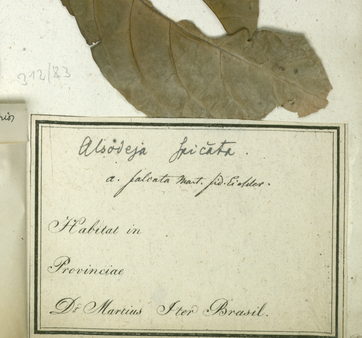 312/83
Alsodeja spicata.
a. falcata Mart. fid. Eichler.
Habitat in
Provinciae
Dr Martius Iter Brasil.